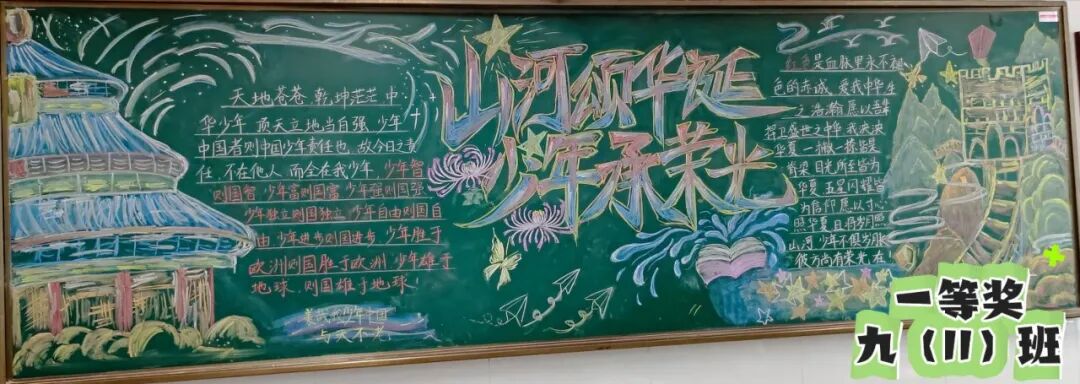 山河颂华诞
少年承荣光
天地苍苍 乾坤茫茫 中
华少年 顶天立地当自强 少年
中国者则中国少年责任也 故今日之责
任,不在他人 而全在我少年, 少年智
则国智 少年富则国富 少年强则国强
少年独立则国独立 少年自由则国自
由 少年进步则国进步 少年胜于
欧洲则国胜于欧洲 少年雄于
地球 则国雄于地球!
美哉我少年中国
与天不老
红色是血脉里永不褪
色的赤诚 爱我中华生
之浩瀚 愿以吾辈
捍卫盛世之中华 我泱泱
华夏 一撇一捺皆是
脊梁 目光所至皆为
华夏 五星闪耀皆
为信仰 愿以寸心
照华夏 且将岁月照
山河 少年不惧岁月长
彼方尚有荣光在!
一等奖
九(11)班